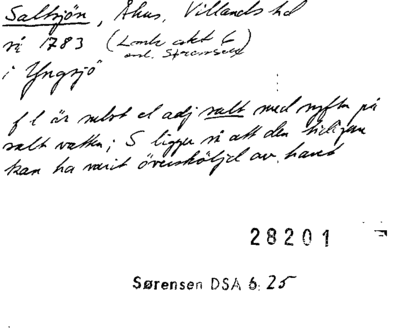 Saltsjön, Åhus, Villands hd
1783 (Lantm akt 6
i Yngsjö
f l är subst el adj salt med syftn på
salt vatten; S ligger så att den tidigare
kan ha varit översköljd av havet
28201
Sørensen DSA 6:25